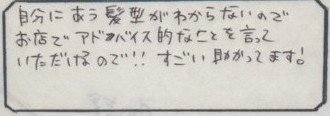 自分にあう髪型がわからないので
お店でアドバイス的なことを言って
いただけるので!! すごい助かってます!